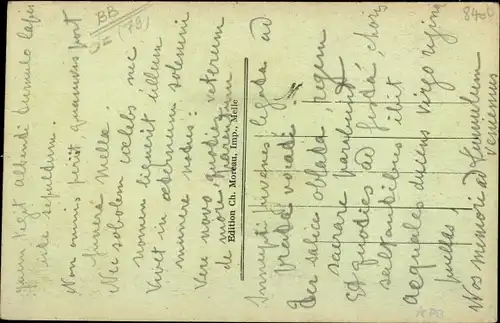 BB
DE (79)
840
Quem tegit albenti tumulo lapis
ille sepultum.
Non omnis periit, quamvis post
funera Melle.
Nec sobolem cœlebs nec
nomen liquerit ullum
Vivet in æternum solemni
munere nodus:
Vere novo quoties veterum
de more parentum
Edition Ch. Moreau, Imp., Melle
Innupti juvenes legata ad
prata vocati
Ter salice oblata regem
sacrare parabunt
Et quoties ad festa, choris
saltantibus ibit
aequales ducens virgo regina
puellas,
Nos memori ad tumulum
veniemus